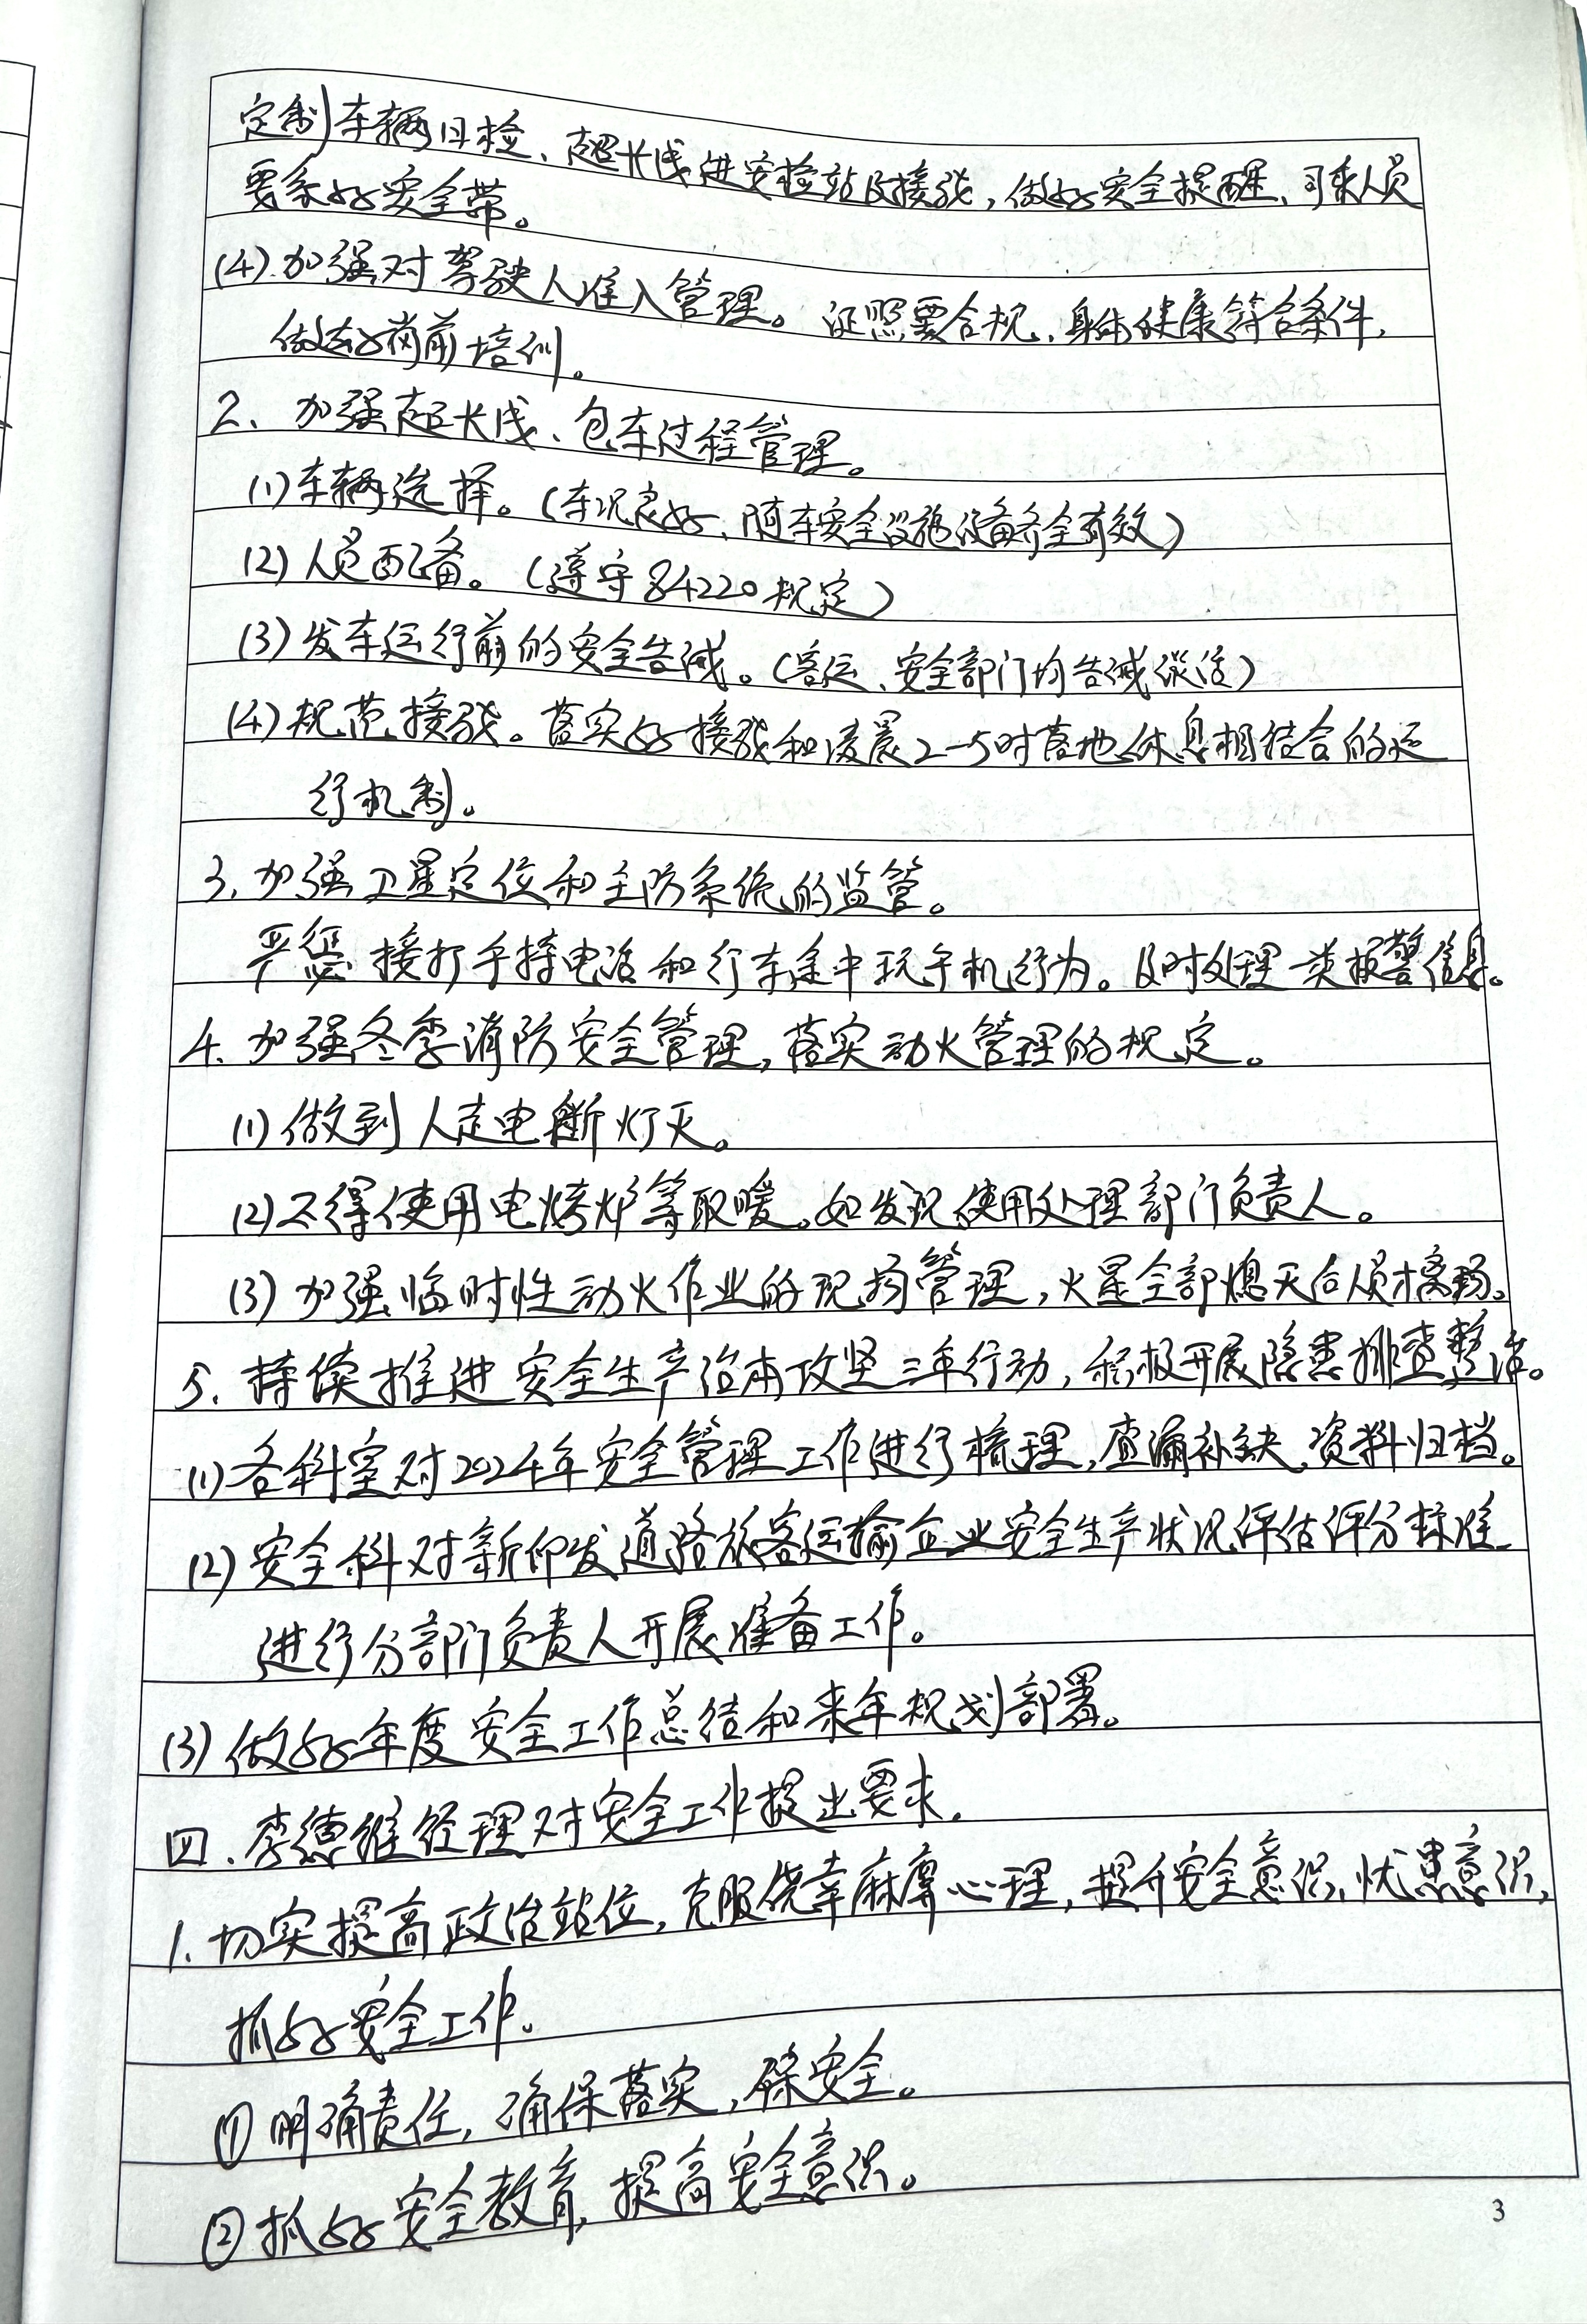 定制车辆日检、超长线进安检站及接驳，做好安全提醒、司乘人员
要系好安全带。
(4).加强对驾驶人准入管理。证照要合规、身体健康符合条件，
做好岗前培训。
2、加强超长线、包车过程管理。
(1)车辆选择。(车况良好、随车安全设施设备齐全有效)
(2)人员配备。(遵守84220规定)
(3)发车运行前的安全告诫。(客运、安全部门均告诫谈话)
(4)规范接驳。落实好接驳和凌晨2-5时落地休息相结合的运
行机制。
3、加强卫星定位和主防系统的监管。
严惩接打手持电话和行车途中玩手机行为。及时处理一类报警信息。
4.加强冬季消防安全管理，落实动火管理的规定。
(1)做到人走电断灯灭。
(2)不得使用电烤炉等取暖。如发现使用处理部门负责人。
(3)加强临时性动火作业的现场管理，火星全部熄灭后人员才离场。
5.持续推进安全生产治本攻坚三年行动，积极开展隐患排查整治。
(1)各科室对2024年安全管理工作进行梳理，查漏补缺，资料归档。
(2)安全科对新印发道路旅客运输企业安全生产状况评估评分标准
进行分部门负责人开展准备工作。
(3)做好年度安全工作总结和来年规划部署。
四.李德维经理对安全工作提出要求.
1.切实提高政治站位，克服侥幸麻痹心理，提升安全意识、忧患意识，
抓好安全工作。
①明确责任，确保落实，保安全。
②抓好安全教育，提高安全意识。
3